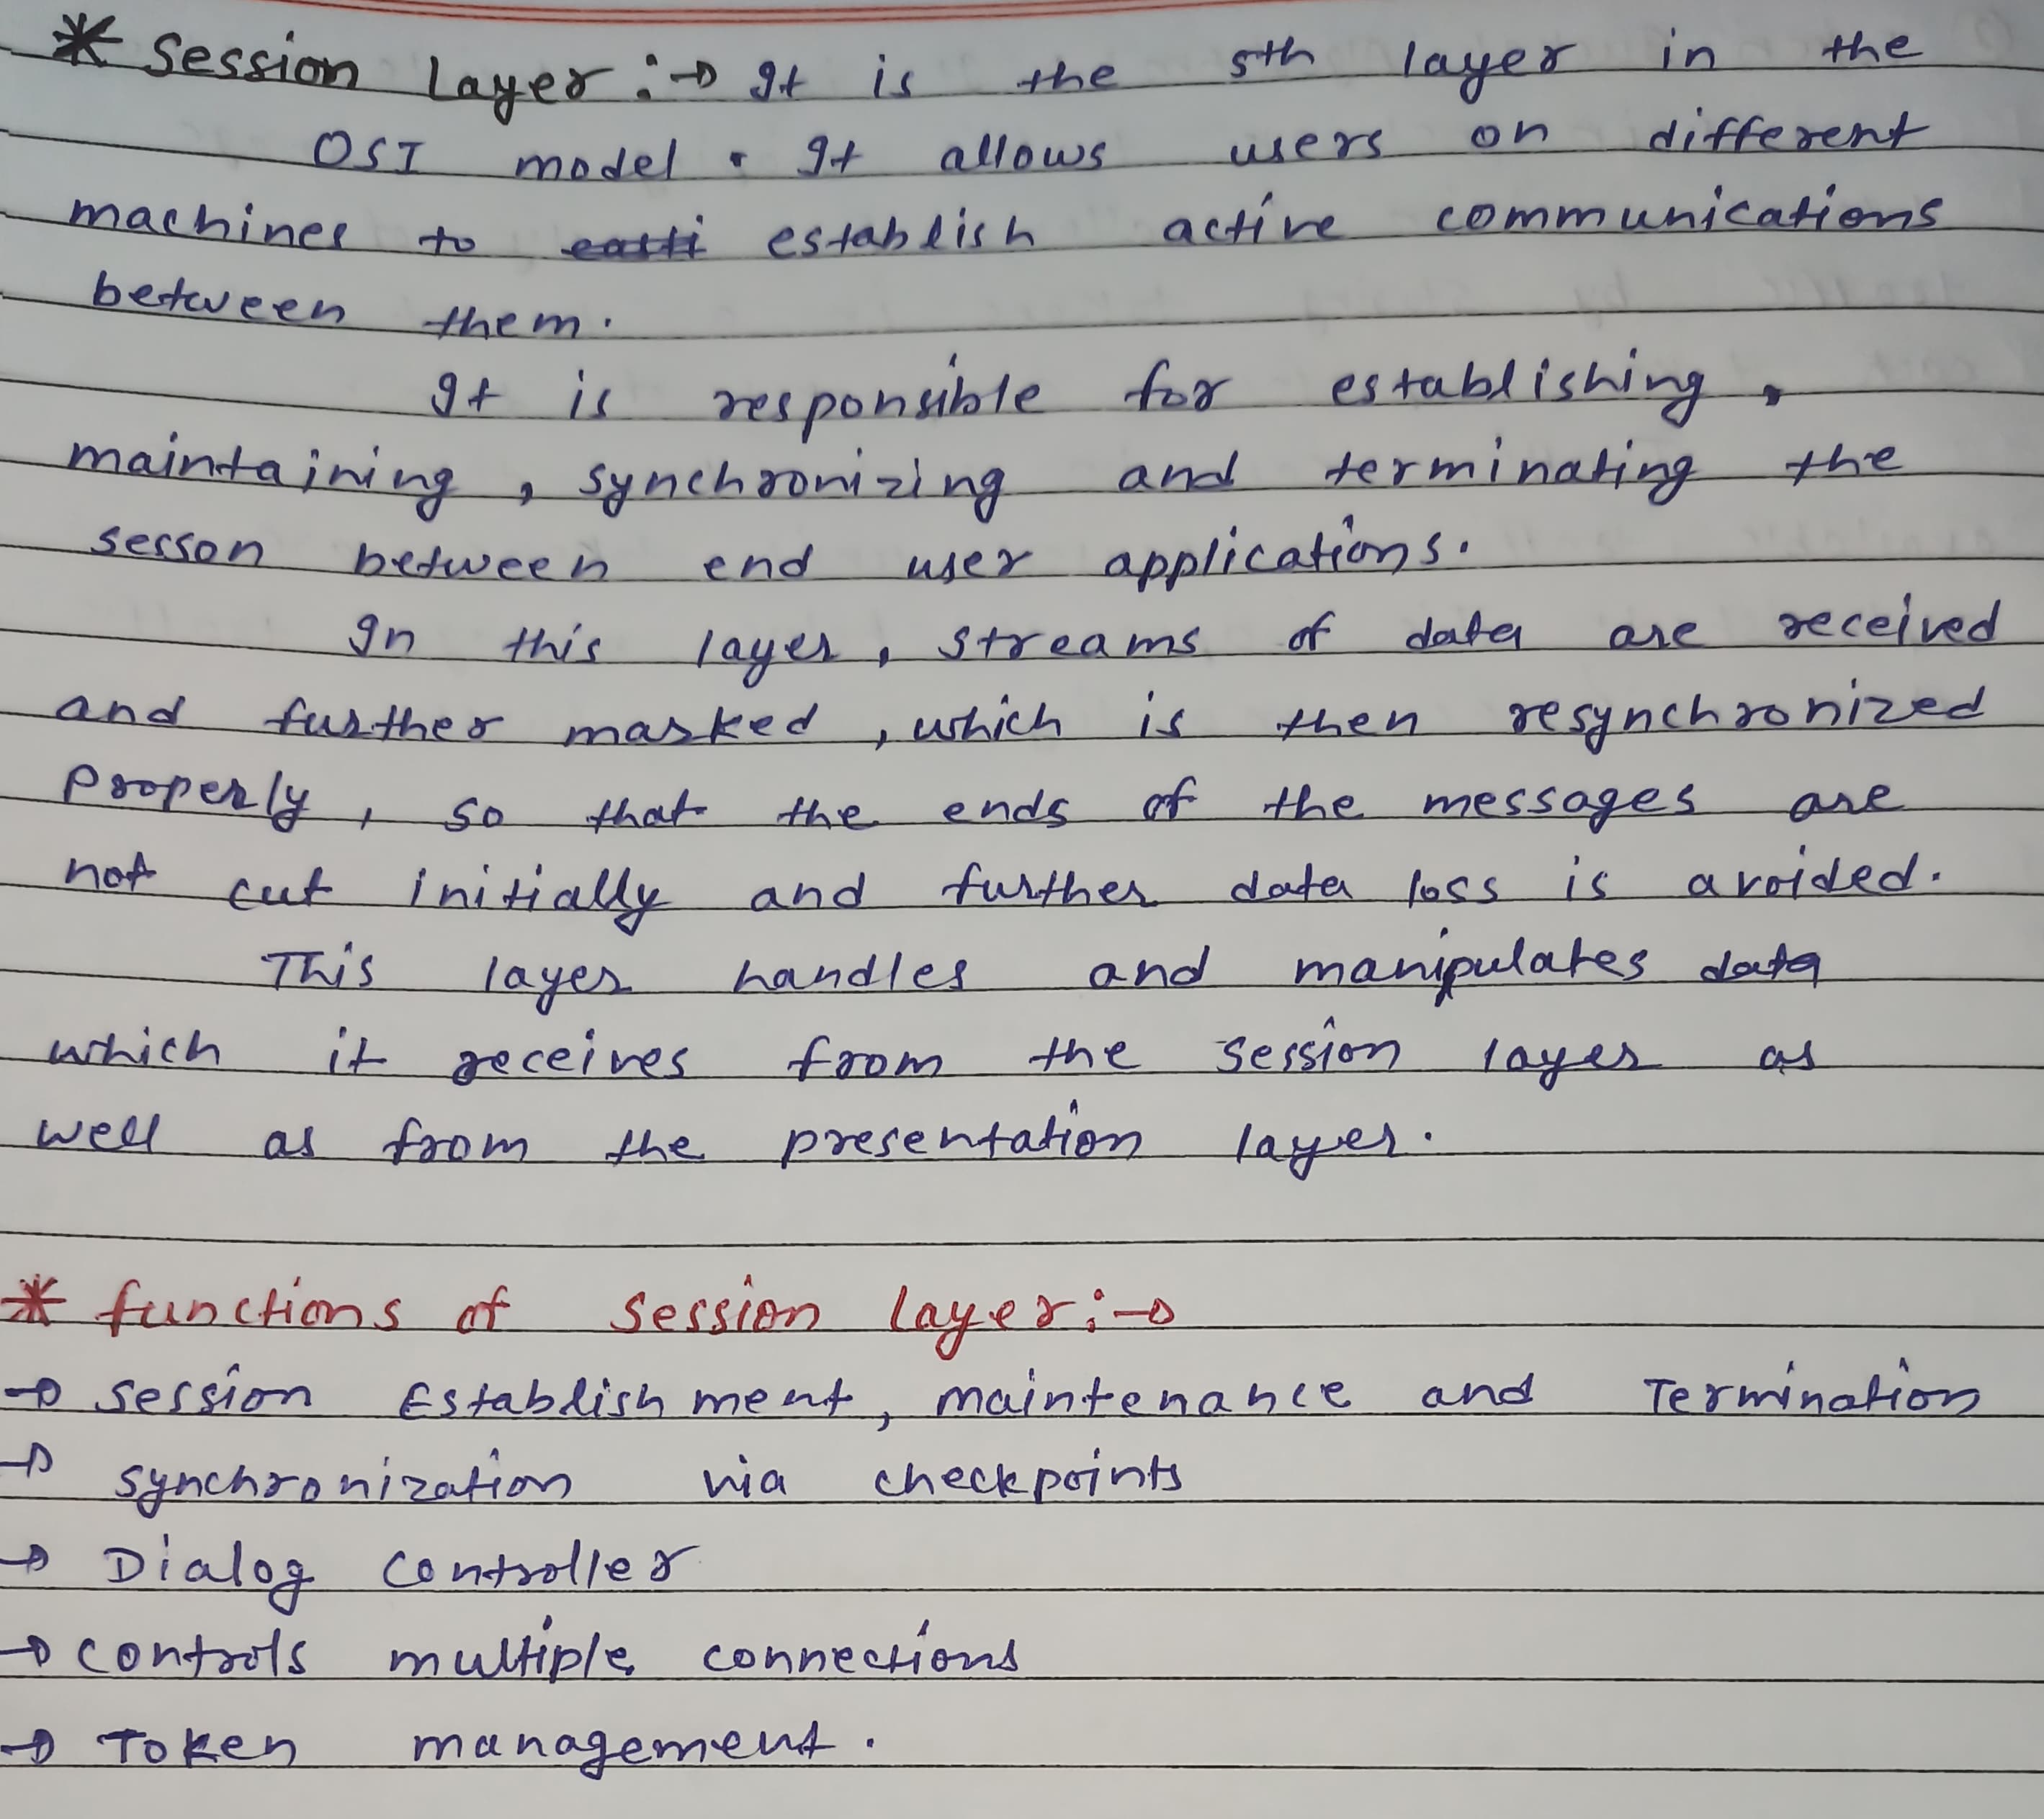 * Session Layer :→ It is the 5th layer in the
OSI model. It allows users on different
machines to eatti establish active communications
between them.
It is responsible for establishing,
maintaining, synchronizing and terminating the
sesson between end user applications.
In this layer, streams of data are received
and further marked, which is then resynchronized
properly, so that the ends of the messages are
not cut initially and further data loss is avoided.
This layer handles and manipulates data
which it receives from the session layer as
well as from the presentation layer.
* functions of session layer :→
→ session Establishment, maintenance and Termination
→ synchronization via checkpoints
→ Dialog controller
→ controls multiple connections
→ Token management.